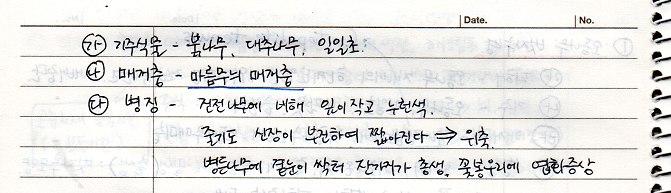 Date. No.
㉮ 기주식물 - 붉나무, 대추나무, 일일초.
㉯ 매개충 - 마름무늬매미충
㉰ 병징 - 건전나무에 비해 잎이 작고 누런색.
줄기도 신장이 부진하여 짧아진다 ⇒ 위축.
병든나무에 곁눈이 싹터 잔가지가 총생, 꽃봉우리에 엽화증상